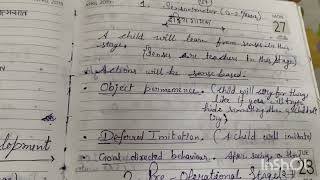 1. Sensorimotor (0-2 years)
इंद्रिय गामक
MON
27
A child will learn from senses in this
stage.
(Senses are teachers in this stage)
Actions will be sense based.
• Object permanence. (Child will cry for things
like if you will try to
hide something then a child will
cry)
• Deferred Imitation. (A child will imitate)
• Goal directed behaviour. After seeing
2. Pre-Operational Stage
elopment
23